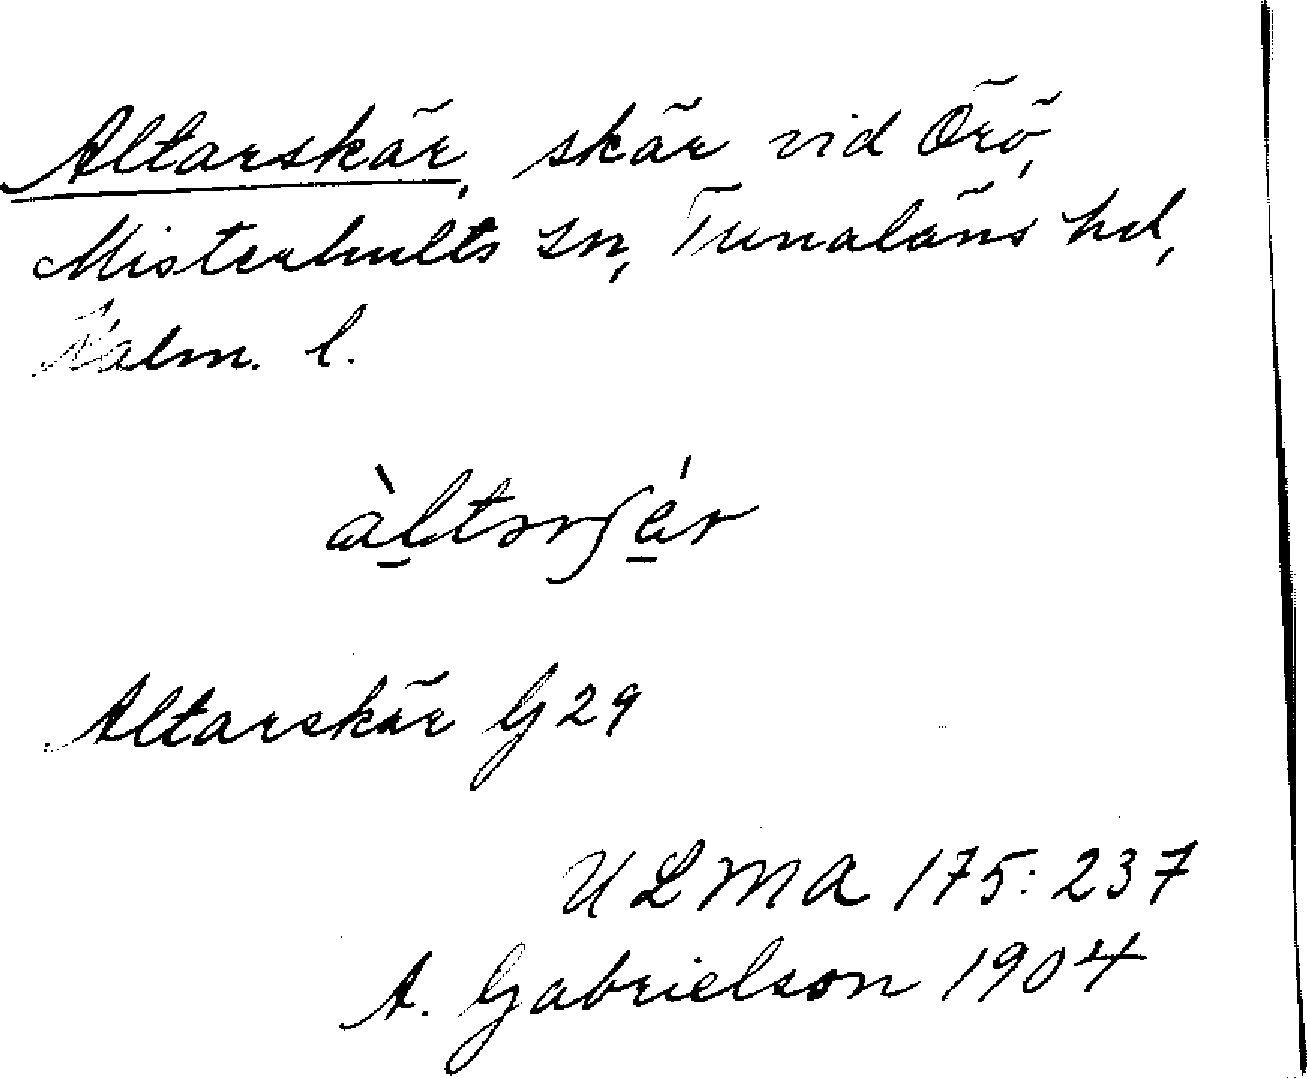 Altarskär, skär vid Örö,
Misterhults sn, Tunaläns hd,
Kalm. l.
Altarskär G 29
ULMA 175:237
A. Gabrielson 1904